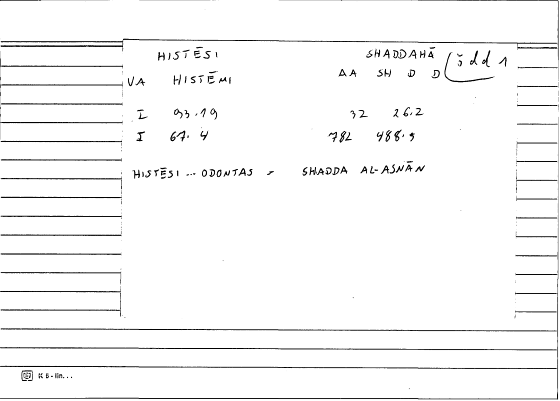 HISTĒSI SHADDAHĀ šdd 1
VA HISTĒMI AA SH D D
I 93.19 32 26.2
I 67.4 782 488.5
HISTĒSI ... ODONTAS SHADDA AL-ASNĀN
K 6 - lin...